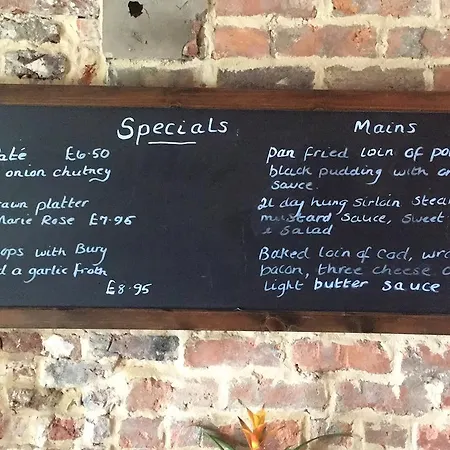 Specials
até £6.50
onion chutney
rawn platter
Marie Rose £7.95
ops with Bury
d a garlic froth
£8.95
Mains
Pan fried loin of po
black pudding with
sauce.
21 day hung sirloin stea
mustard sauce, sweet
& salad
Baked loin of Cod, wra
bacon, three cheese
Light butter sauce